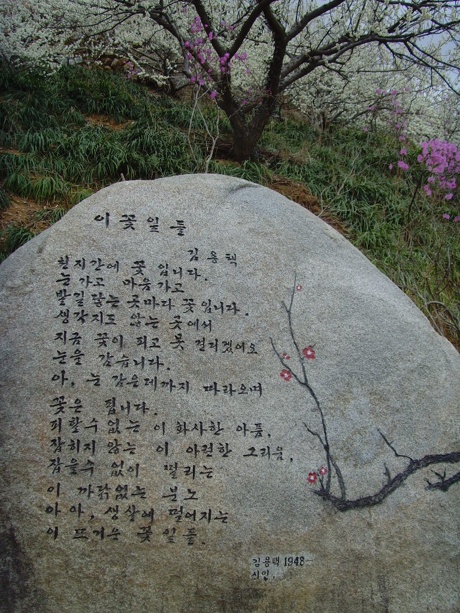 이 꽃잎들
김용택
천지간에 꽃 입니다.
눈가고 마음가고
발길닿는 곳마다 꽃입니다.
생각지도 않는 곳에서
지금 꽃이 피고 못 견디겠어요
눈을 감습니다.
아, 눈 감은데까지 따라오며
꽃은 핍니다.
피할수 없는 이 화사한 아픔,
잡히지 않는 이 아련한 그리움,
참을수 없이 떨리는
이 까닭없는 분노
아아, 생살에 떨어지는
이 뜨거운 꽃잎들.
김용택 1948~
시인.